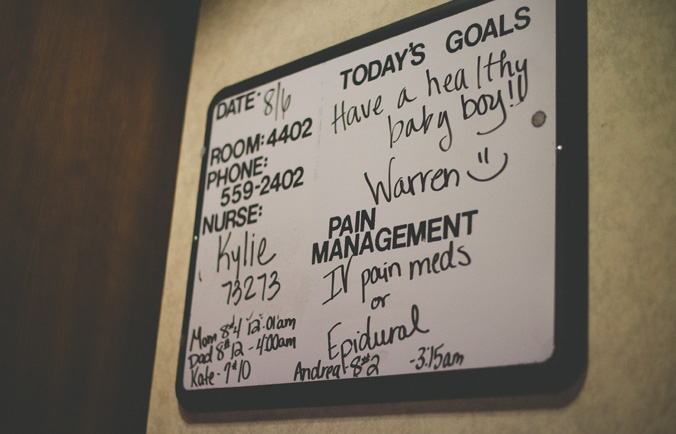 DATE: 8/6
ROOM: 4402
PHONE:
559-2402
NURSE:
Kylie
73273
Mom 8#4 12:01am
Dad 8#12 - 4:00am
Kate - 7#10
TODAY'S GOALS
Have a healthy
baby boy!!
Warren
PAIN
MANAGEMENT
IV pain meds
or
Epidural
Andrea - 8#2 - 3:15am